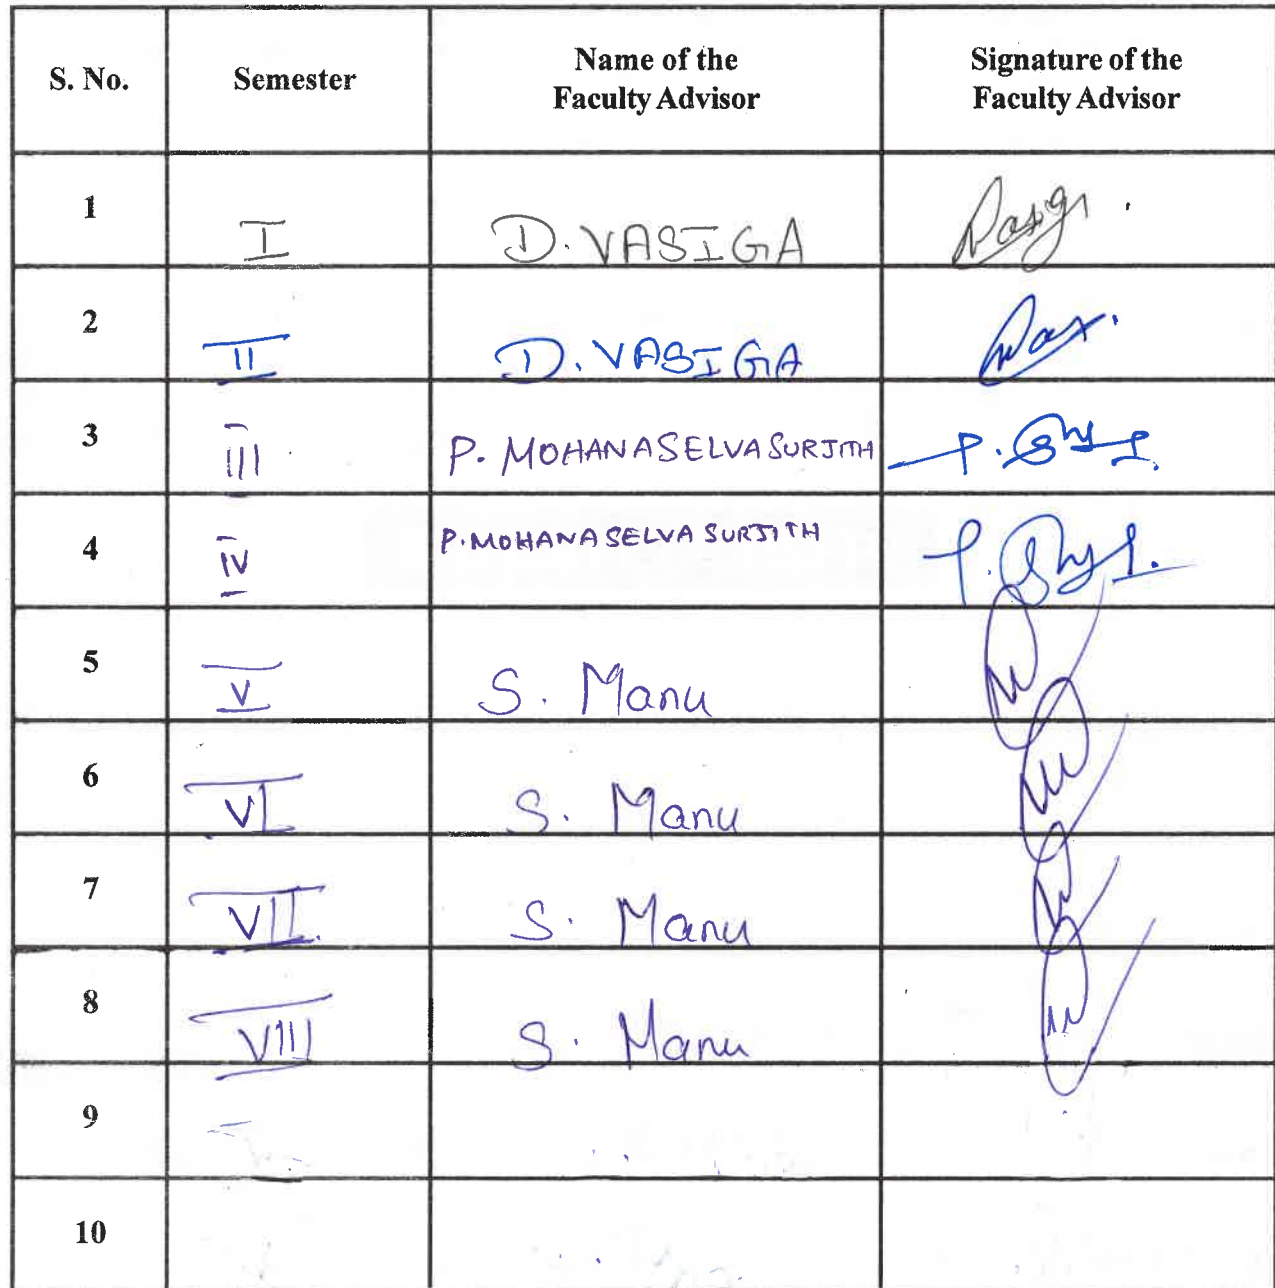 S. No. Semester Name of the Faculty Advisor Signature of the Faculty Advisor
1 I D. VASIGA
2 II D. VASIGA
3 III P. MOHANASELVASURJITH
4 IV P. MOHANA SELVA SURJITH
5 V S. Manu
6 VI S. Manu
7 VII S. Manu
8 VIII S. Manu
9
10